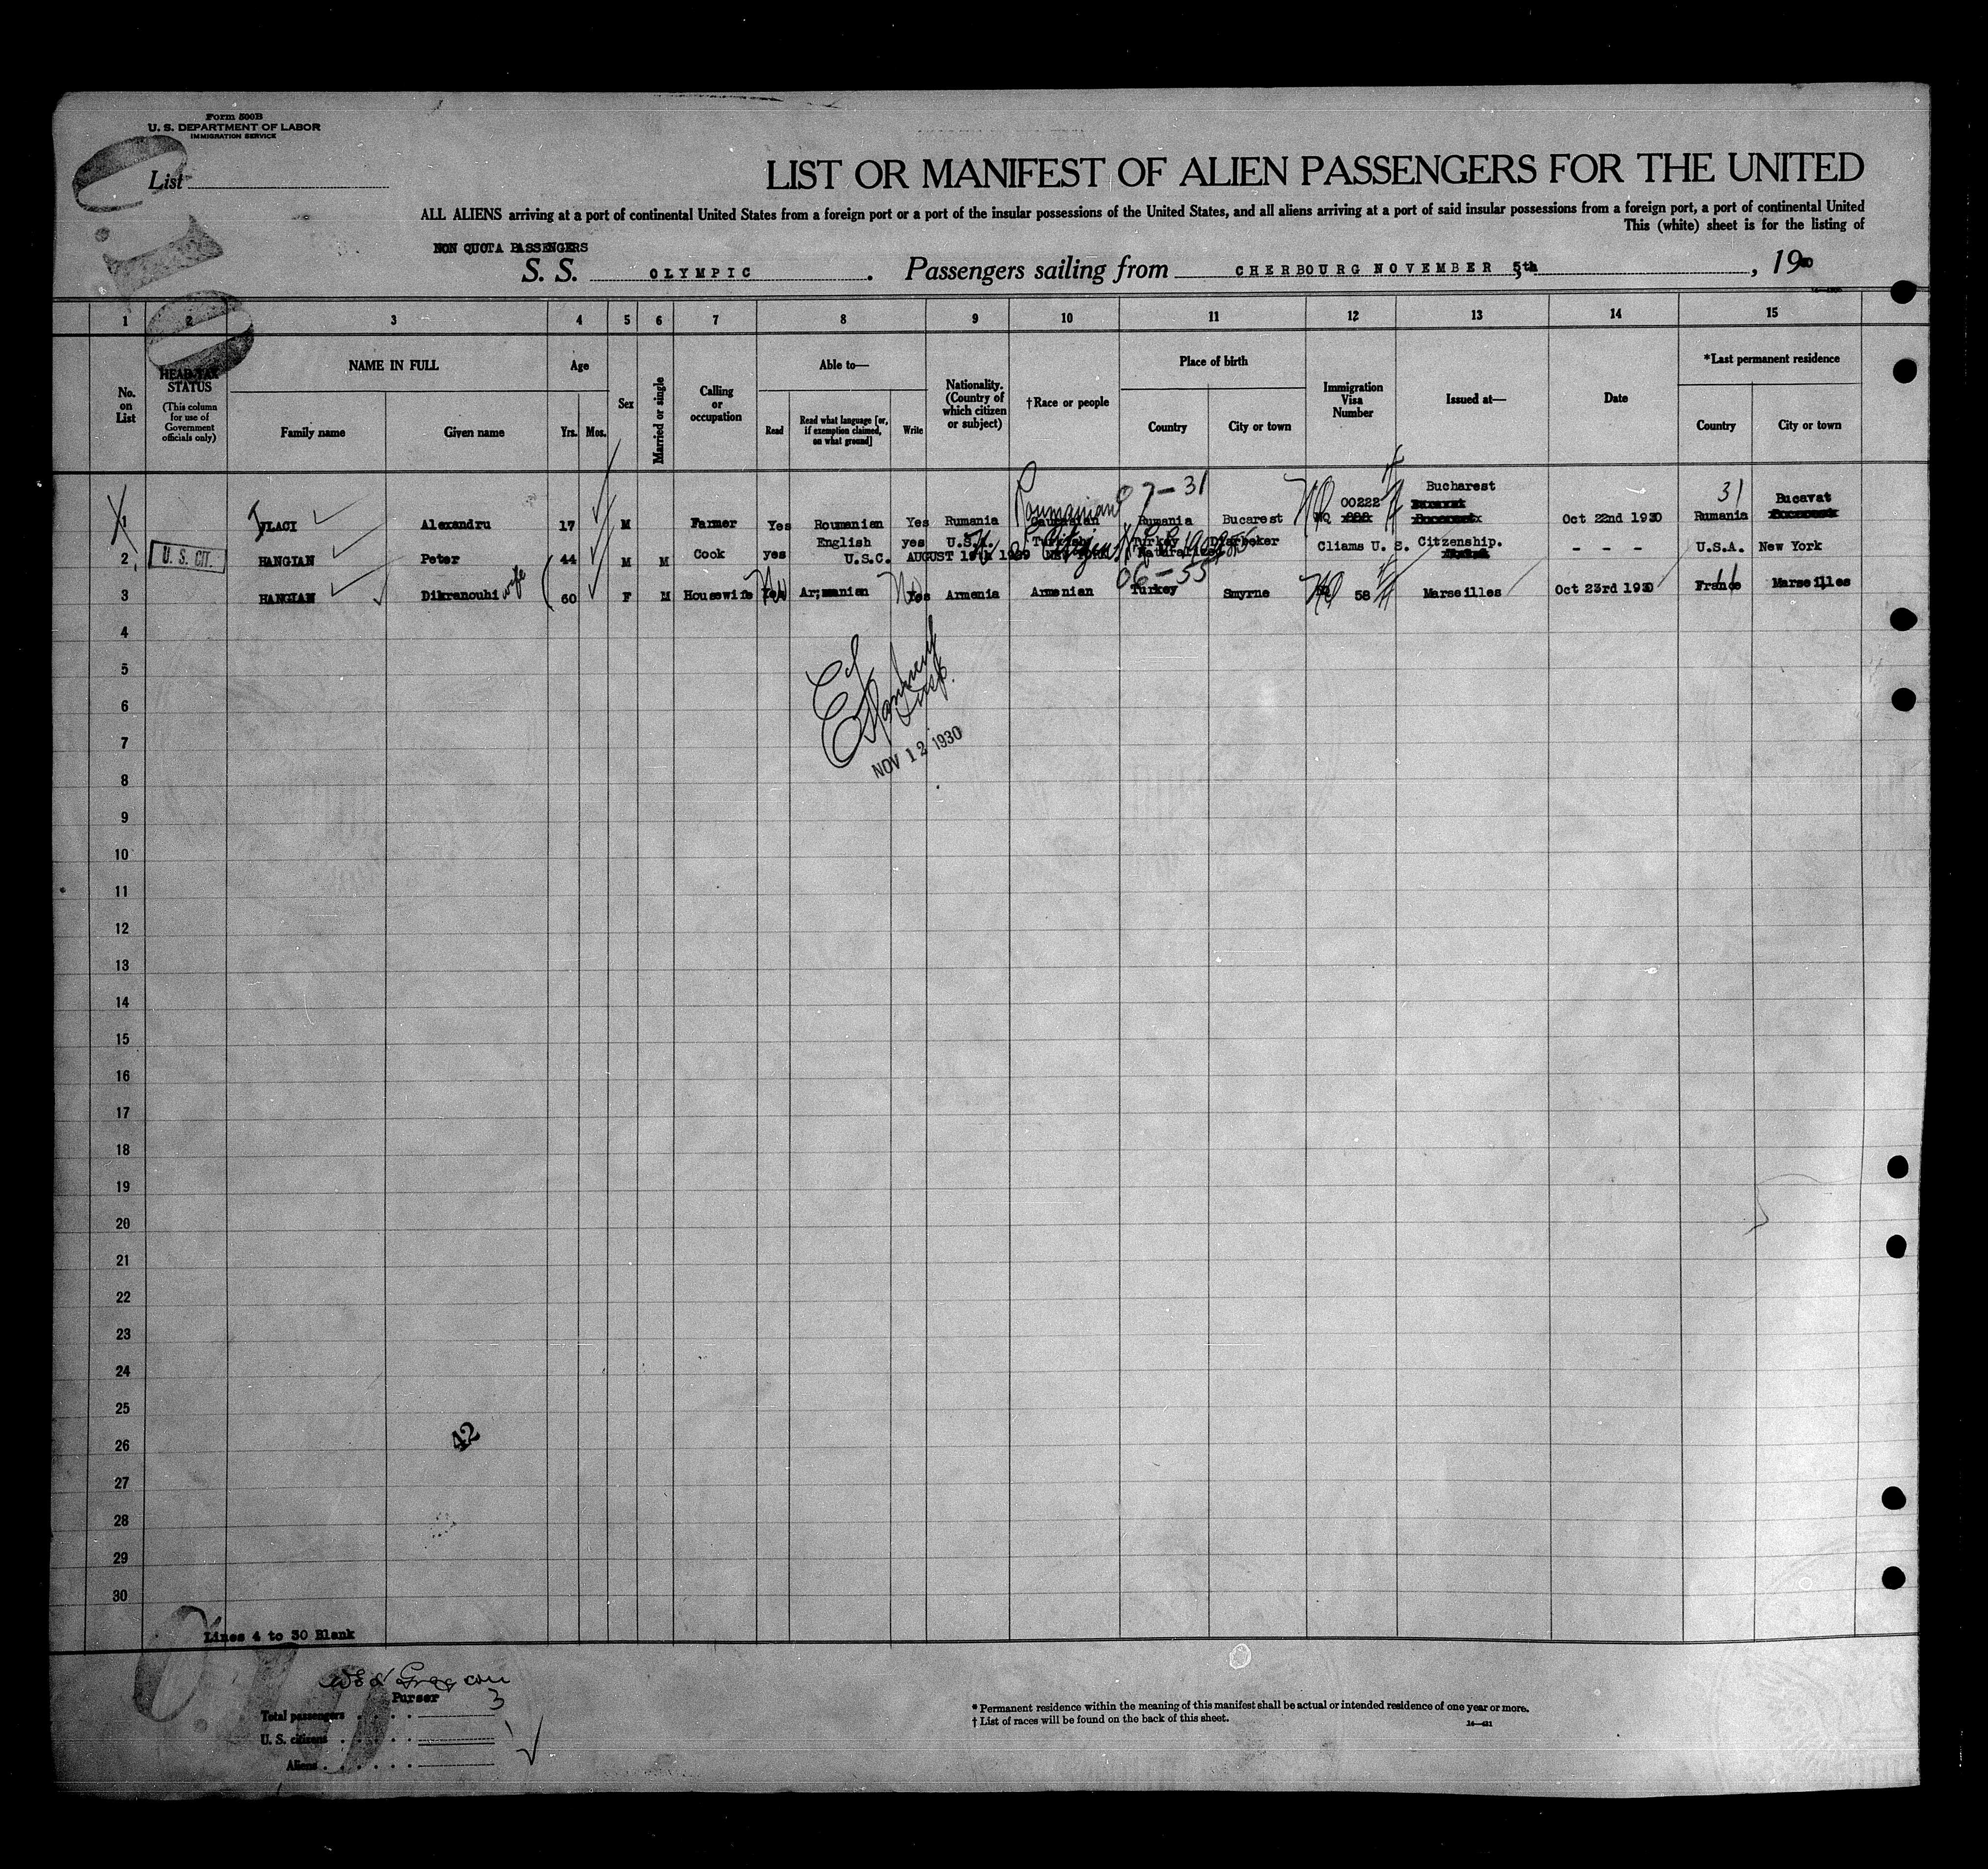 Form 500B
U. S. DEPARTMENT OF LABOR
IMMIGRATION SERVICE
List
LIST OR MANIFEST OF ALIEN PASSENGERS FOR THE UNITED
ALL ALIENS arriving at a port of continental United States from a foreign port or a port of the insular possessions of the United States, and all aliens arriving at a port of said insular possessions from a foreign port, a port of continental United
This (white) sheet is for the listing of
NON QUOTA PASSENGERS
S. S. OLYMPIC. Passengers sailing from CHERBOURG NOVEMBER 5th, 1930
1 2 3 4 5 6 7 8 9 10 11 12 13 14 15
No. on List
HEAD-TAX STATUS
(This column for use of Government officials only)
NAME IN FULL
Family name Given name
Age
Yrs. Mos.
Sex
Married or single
Calling or occupation
Able to—
Read Read what language [or, if exemption claimed, on what ground] Write
Nationality. (Country of which citizen or subject)
†Race or people
Place of birth
Country City or town
Immigration Visa Number
Issued at—
Date
*Last permanent residence
Country City or town
Roumanian 07-31 NQ 00222 Bucharest 31 Bucavat
1 VLACI Alexandru 17 M Farmer Yes Roumanian Yes Rumania Rumania Bucarest NQ Oct 22nd 1930 Rumania
English yes U.S.A. Turkish Turkey Diarbeker
2 U. S. CIT. HANGIAN Peter 44 M M Cook yes U.S.C. AUGUST 19th 1929 NEW YORK Naturalized Cliams U. S. Citzenship. - - - U.S.A. New York
06-55
3 HANGIAN Dikranouhi wife 60 F M Housewife Yes No Armenian Yes No Armenia Armenian Turkey Smyrne NQ 58 Marseilles Oct 23rd 1930 France Marseilles
4
5
6
7
Insp.
NOV 12 1930
8
9
10
11
12
13
14
15
16
17
18
19
20
21
22
23
24
25
26
42
27
28
29
30
Lines 4 to 30 Blank
Purser
Total passengers 3
U. S. citizens
Aliens
* Permanent residence within the meaning of this manifest shall be actual or intended residence of one year or more.
† List of races will be found on the back of this sheet.
14—421